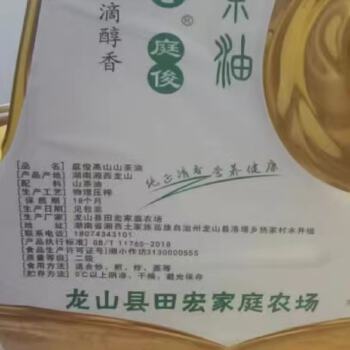 滴醇香
庭俊
®
茶油
品名：庭俊高山山茶油
产品产地：湖南湘西龙山
配料：山茶油
生产工艺：物理压榨
保质期：18个月
生产日期：见包装
生产厂家：龙山县田宏家庭农场
地址：湖南省湘西土家族苗族自治州龙山县洛塔乡热家村水井组
联系电话：18074343101
产品执行标准：GB/T 11765-2018
食品生产许可证号：湘小作坊3130000555
质量等级：二级
食用方法：适合炒、煎、炸、蒸等
贮存方法：0℃以上阴凉、干燥、避光保存
地正清香 营养健康
龙山县田宏家庭农场